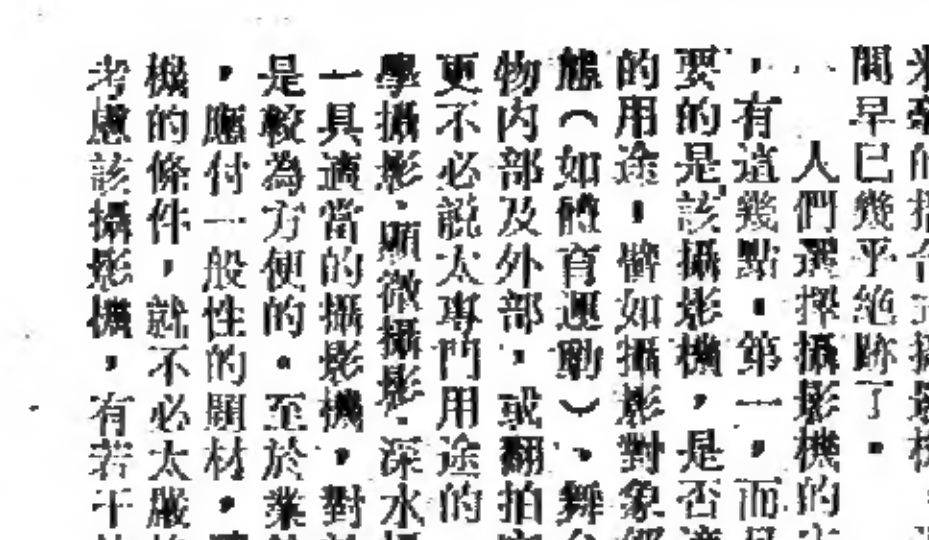 間早已幾乎絕跡了。
人們選擇攝影機的
，有這幾點。第一，而
要的是該攝影機，是否
的用途。譬如攝影對象
態（如體育運動）、舞
物內部及外部，或翻拍
更不必說太專門用途的
學攝影，顯微攝影，深水
一具適當的攝影機，對
是較為方便的。至於業
，應付一般性的題材，
機的條件，就不必太嚴
考慮該攝影機，有若干